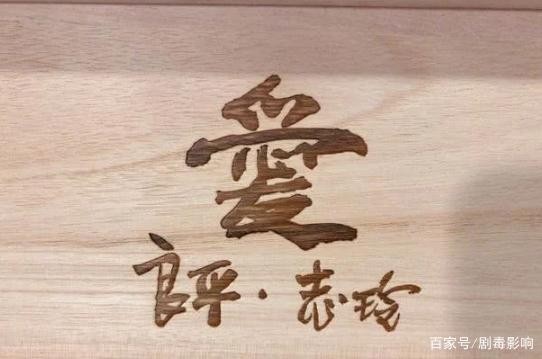 愛
良平·志玲
百家号/剧毒影响